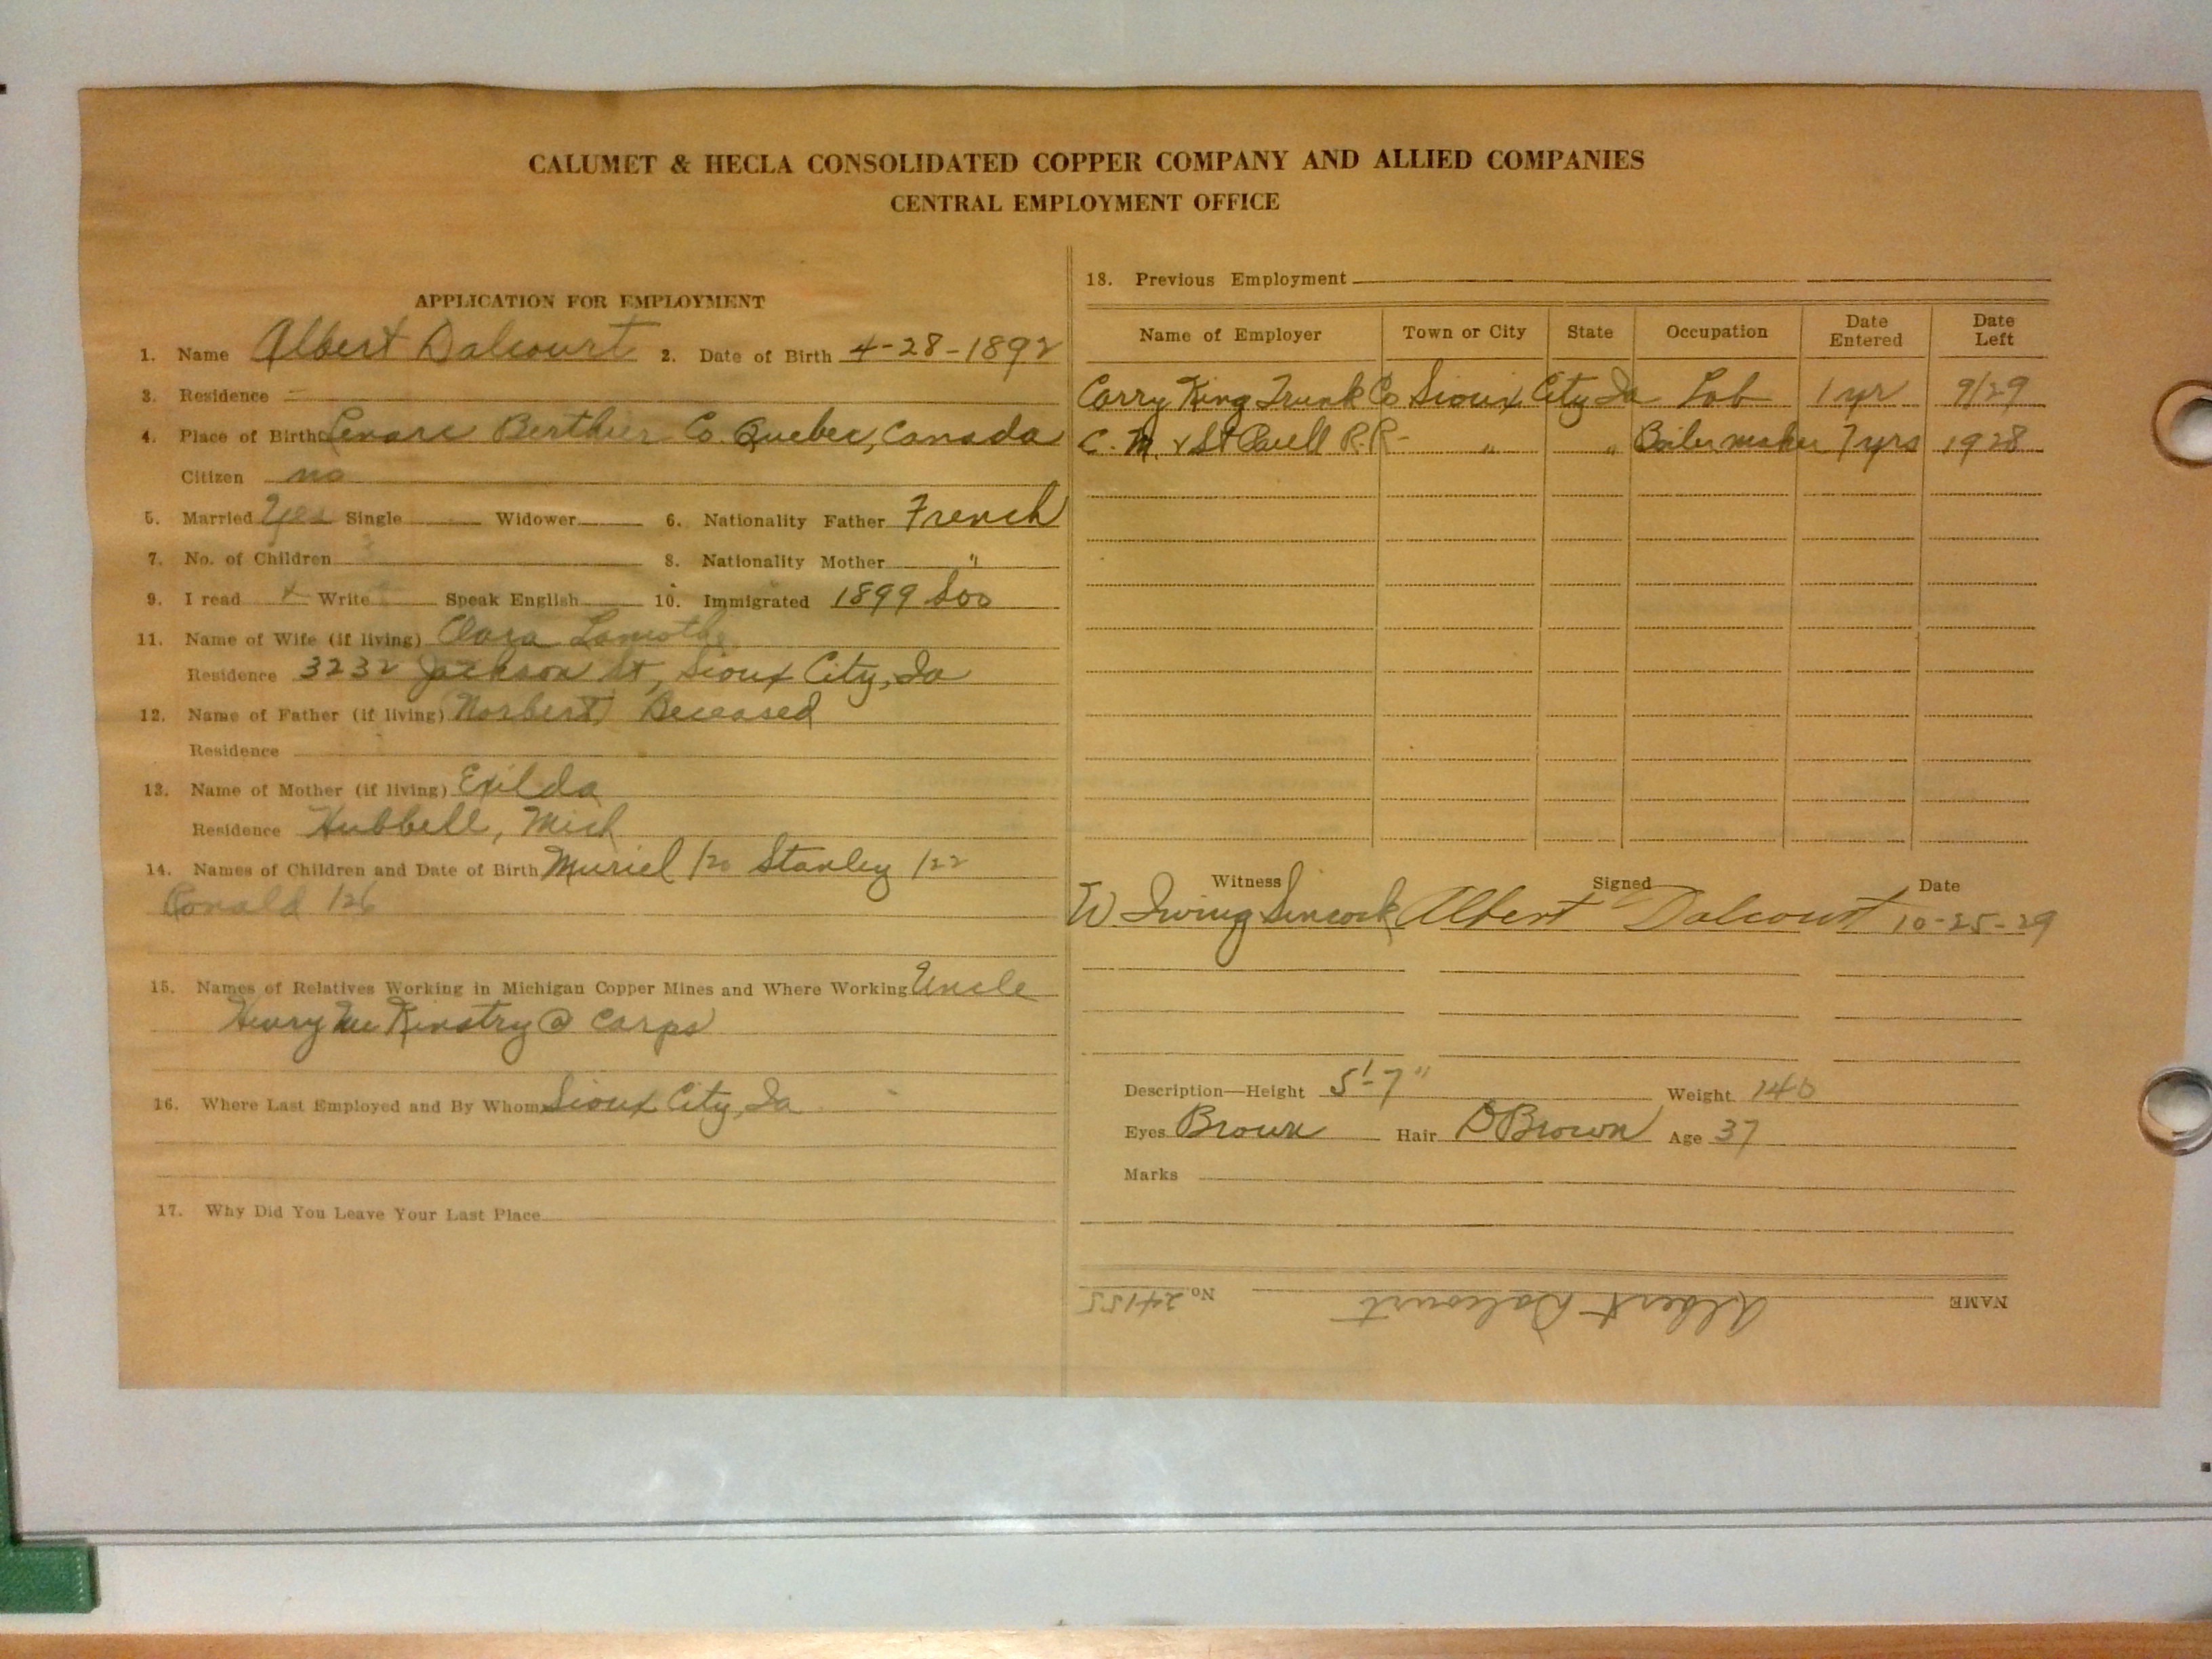 CALUMET & HECLA CONSOLIDATED COPPER COMPANY AND ALLIED COMPANIES
CENTRAL EMPLOYMENT OFFICE
APPLICATION FOR EMPLOYMENT
1. Name Albert Dalcourt 2. Date of Birth 4-28-1892
3. Residence
4. Place of Birth Berthier Co. Quebec, Canada
Citizen no
5. Married Yes Single Widower 6. Nationality Father French
7. No. of Children 3 8. Nationality Mother "
9. I read Write Speak English 10. Immigrated 1899 Soo
11. Name of Wife (if living) Clara Lamothe
Residence 3232 Jackson St, Sioux City, Ia
12. Name of Father (if living) Norbert Deceased
Residence
13. Name of Mother (if living) Exilda
Residence Hubbell, Mich
14. Names of Children and Date of Birth Muriel /20 Stanley /22
Ronald /26
15. Names of Relatives Working in Michigan Copper Mines and Where Working Uncle
Henry McKinstry @ Carps
16. Where Last Employed and By Whom Sioux City, Ia
17. Why Did You Leave Your Last Place
18. Previous Employment
Name of Employer Town or City State Occupation Date Entered Date Left
King Trunk Co Sioux City Ia Lab 1 yr 9/29
C. M. & St Paul R.R- " " Boilermaker 7 yrs 1928
Witness Signed Date
W. Irving Sincock Albert Dalcourt 10-25-29
Description—Height 5'-7" Weight 140
Eyes Brown Hair D Brown Age 37
Marks
NAME Albert Dalcourt No. 24155